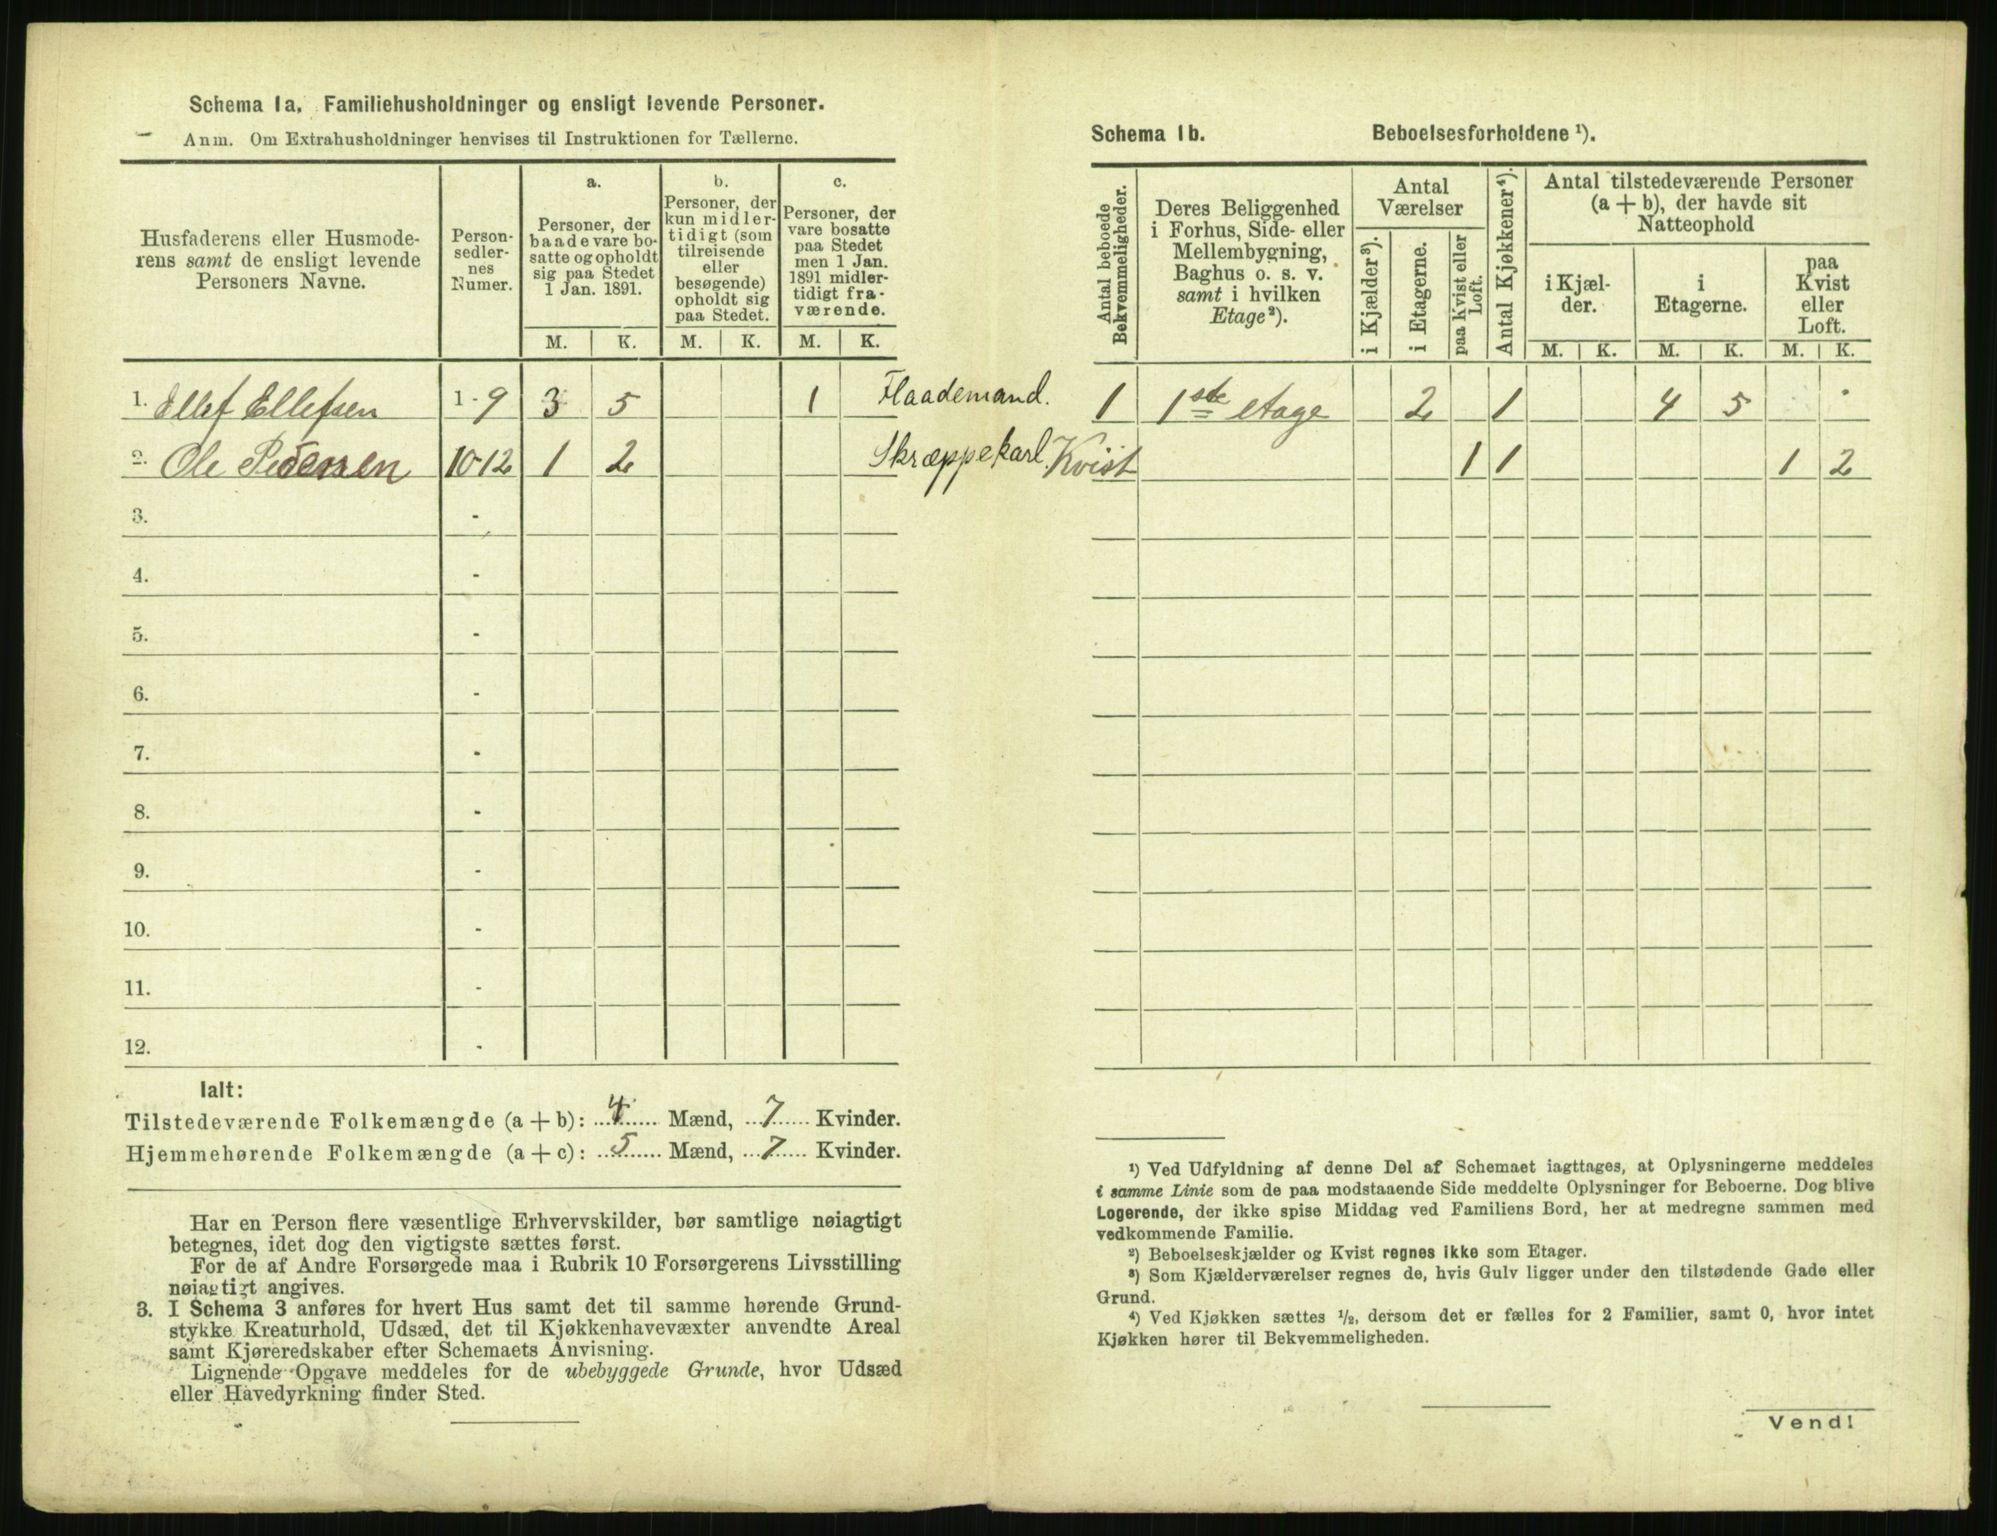 Schema 1a. Familiehusholdninger og ensligt levende Personer.
Anm. Om Extrahusholdninger henvises til Instruktionen for Tællerne.
Husfaderens eller Husmode-
rens samt de ensligt levende
Personers Navne.
Person-
sedler-
nes
Numer.
a.
Personer, der
baade vare bo-
satte og opholdt
sig paa Stedet
1 Jan. 1891.
b.
Personer, der
kun midler-
tidigt (som
tilreisende
eller
besøgende)
opholdt sig
paa Stedet.
c.
Personer, der
vare bosatte
paa Stedet
men 1 Jan.
1891 midler-
tidigt fra-
værende.
M. K. M. K. M. K.
1. Ellef Ellefsen 1-9 3 5 1 Flaademand.
2. Ole Pedersen 10-12 1 2 Skræppekarl.
3. -
4. -
5. -
6. -
7. -
8. -
9. -
10. -
11. -
12. -
Ialt:
Tilstedeværende Folkemængde (a + b): 4 Mænd, 7 Kvinder.
Hjemmehørende Folkemængde (a + c): 5 Mænd, 7 Kvinder.
Har en Person flere væsentlige Erhvervskilder, bør samtlige nøiagtigt
betegnes, idet dog den vigtigste sættes først.
For de af Andre Forsørgede maa i Rubrik 10 Forsørgerens Livsstilling
nøiagtigt angives.
3. I Schema 3 anføres for hvert Hus samt det til samme hørende Grund-
stykke Kreaturhold, Udsæd, det til Kjøkkenhavevæxter anvendte Areal
samt Kjøreredskaber efter Schemaets Anvisning.
Lignende Opgave meddeles for de ubebyggede Grunde, hvor Udsæd
eller Havedyrkning finder Sted.
Schema 1b. Beboelsesforholdene ¹).
Antal beboede
Bekvemmeligheder.
Deres Beliggenhed
i Forhus, Side- eller
Mellembygning,
Baghus o. s. v.
samt i hvilken
Etage²).
Antal
Værelser
i Kjælder³).
i Etagerne.
paa Kvist eller
Loft.
Antal Kjøkkener⁴).
Antal tilstedeværende Personer
(a + b), der havde sit
Natteophold
i Kjæl-
der.
i
Etagerne.
paa
Kvist
eller
Loft.
M. K. M. K. M. K.
1 1ste etage 2 1 4 5
Kvist 1 1 1 2
¹) Ved Udfyldning af denne Del af Schemaet iagttages, at Oplysningerne meddeles
i samme Linie som de paa modstaaende Side meddelte Oplysninger for Beboerne. Dog blive
Logerende, der ikke spise Middag ved Familiens Bord, her at medregne sammen med
vedkommende Familie.
²) Beboelseskjælder og Kvist regnes ikke som Etager.
³) Som Kjælderværelser regnes de, hvis Gulv ligger under den tilstødende Gade eller
Grund.
⁴) Ved Kjøkken sættes ½, dersom det er fælles for 2 Familier, samt 0, hvor intet
Kjøkken hører til Bekvemmeligheden.
Vend!